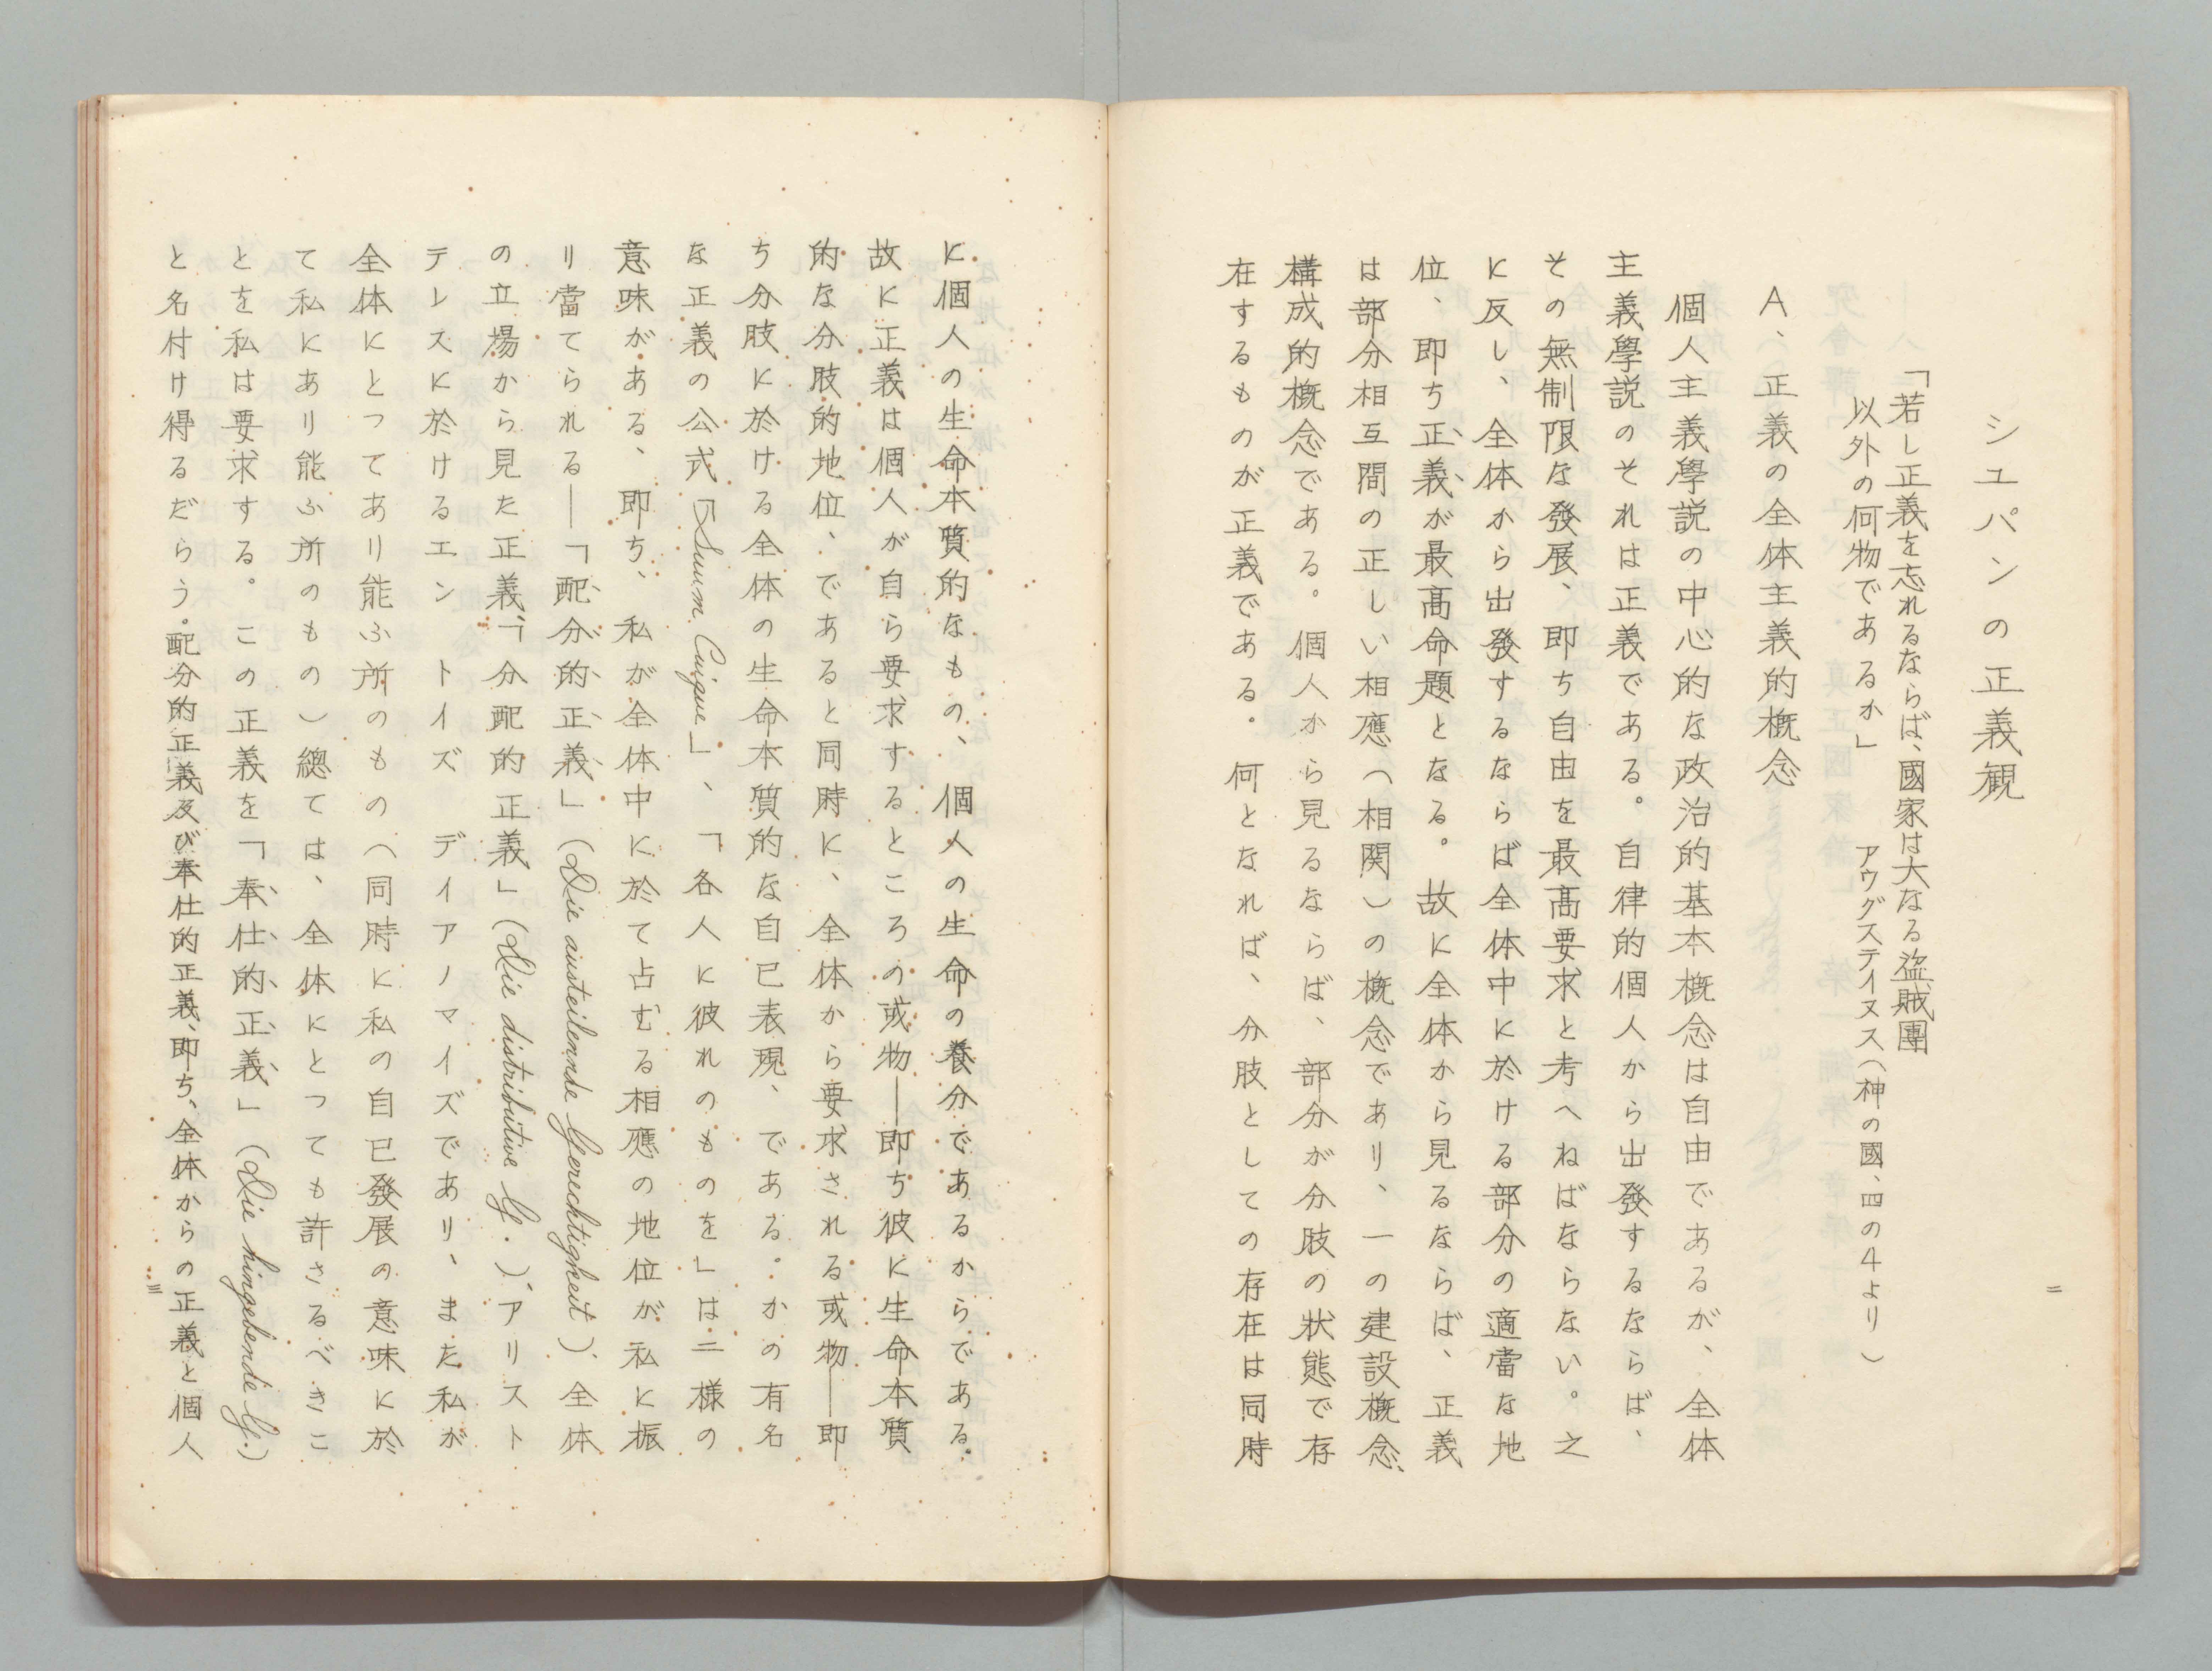 シユパンの正義観
「若し正義を忘れるならば、國家は大なる盗賊團
以外の何物であるか」　アウグステイヌス（神の國、四の4より）
A、正義の全体主義的概念
個人主義學説の中心的な政治的基本概念は自由であるが、全体
主義學説のそれは正義である。自律的個人から出發するならば、
その無制限な發展、即ち自由を最高要求と考へねばならない。之
に反し、全体から出發するならば全体中に於ける部分の適當な地
位、即ち正義が最高命題となる。故に全体から見るならば、正義
は部分相互間の正しい相應（相関）の概念であり、一の建設概念、
構成的概念である。個人から見るならば、部分が分肢の状態で存
在するものが正義である。何となれば、分肢としての存在は同時
二
に個人の生命本質的なもの、個人の生命の養分であるからである。
故に正義は個人が自ら要求するところの或物──即ち彼に生命本質
的な分肢的地位、であると同時に、全体から要求される或物──即
ち分肢に於ける全体の生命本質的な自己表現、である。かの有名
な正義の公式「Suum Cuique」、「各人に彼れのものを」は二様の
意味がある、即ち、私が全体中に於て占むる相應の地位が私に振
り當てられる──「配分的正義」（Die austeilende Gerechtigkeit）、全体
の立場から見た正義、「分配的正義」（Die distributive G.）、アリスト
テレスに於けるエン　トイズ　デイアノマイズであり、また私が
全体にとつてあり能ふ所のもの（同時に私の自己發展の意味に於
て私にあり能ふ所のもの）總ては、全体にとつても許さるべきこ
とを私は要求する。この正義を「奉仕的正義」（Die hingebende G.）
と名付け得るだらう。配分的正義及び奉仕的正義、即ち、全体からの正義と個人
三